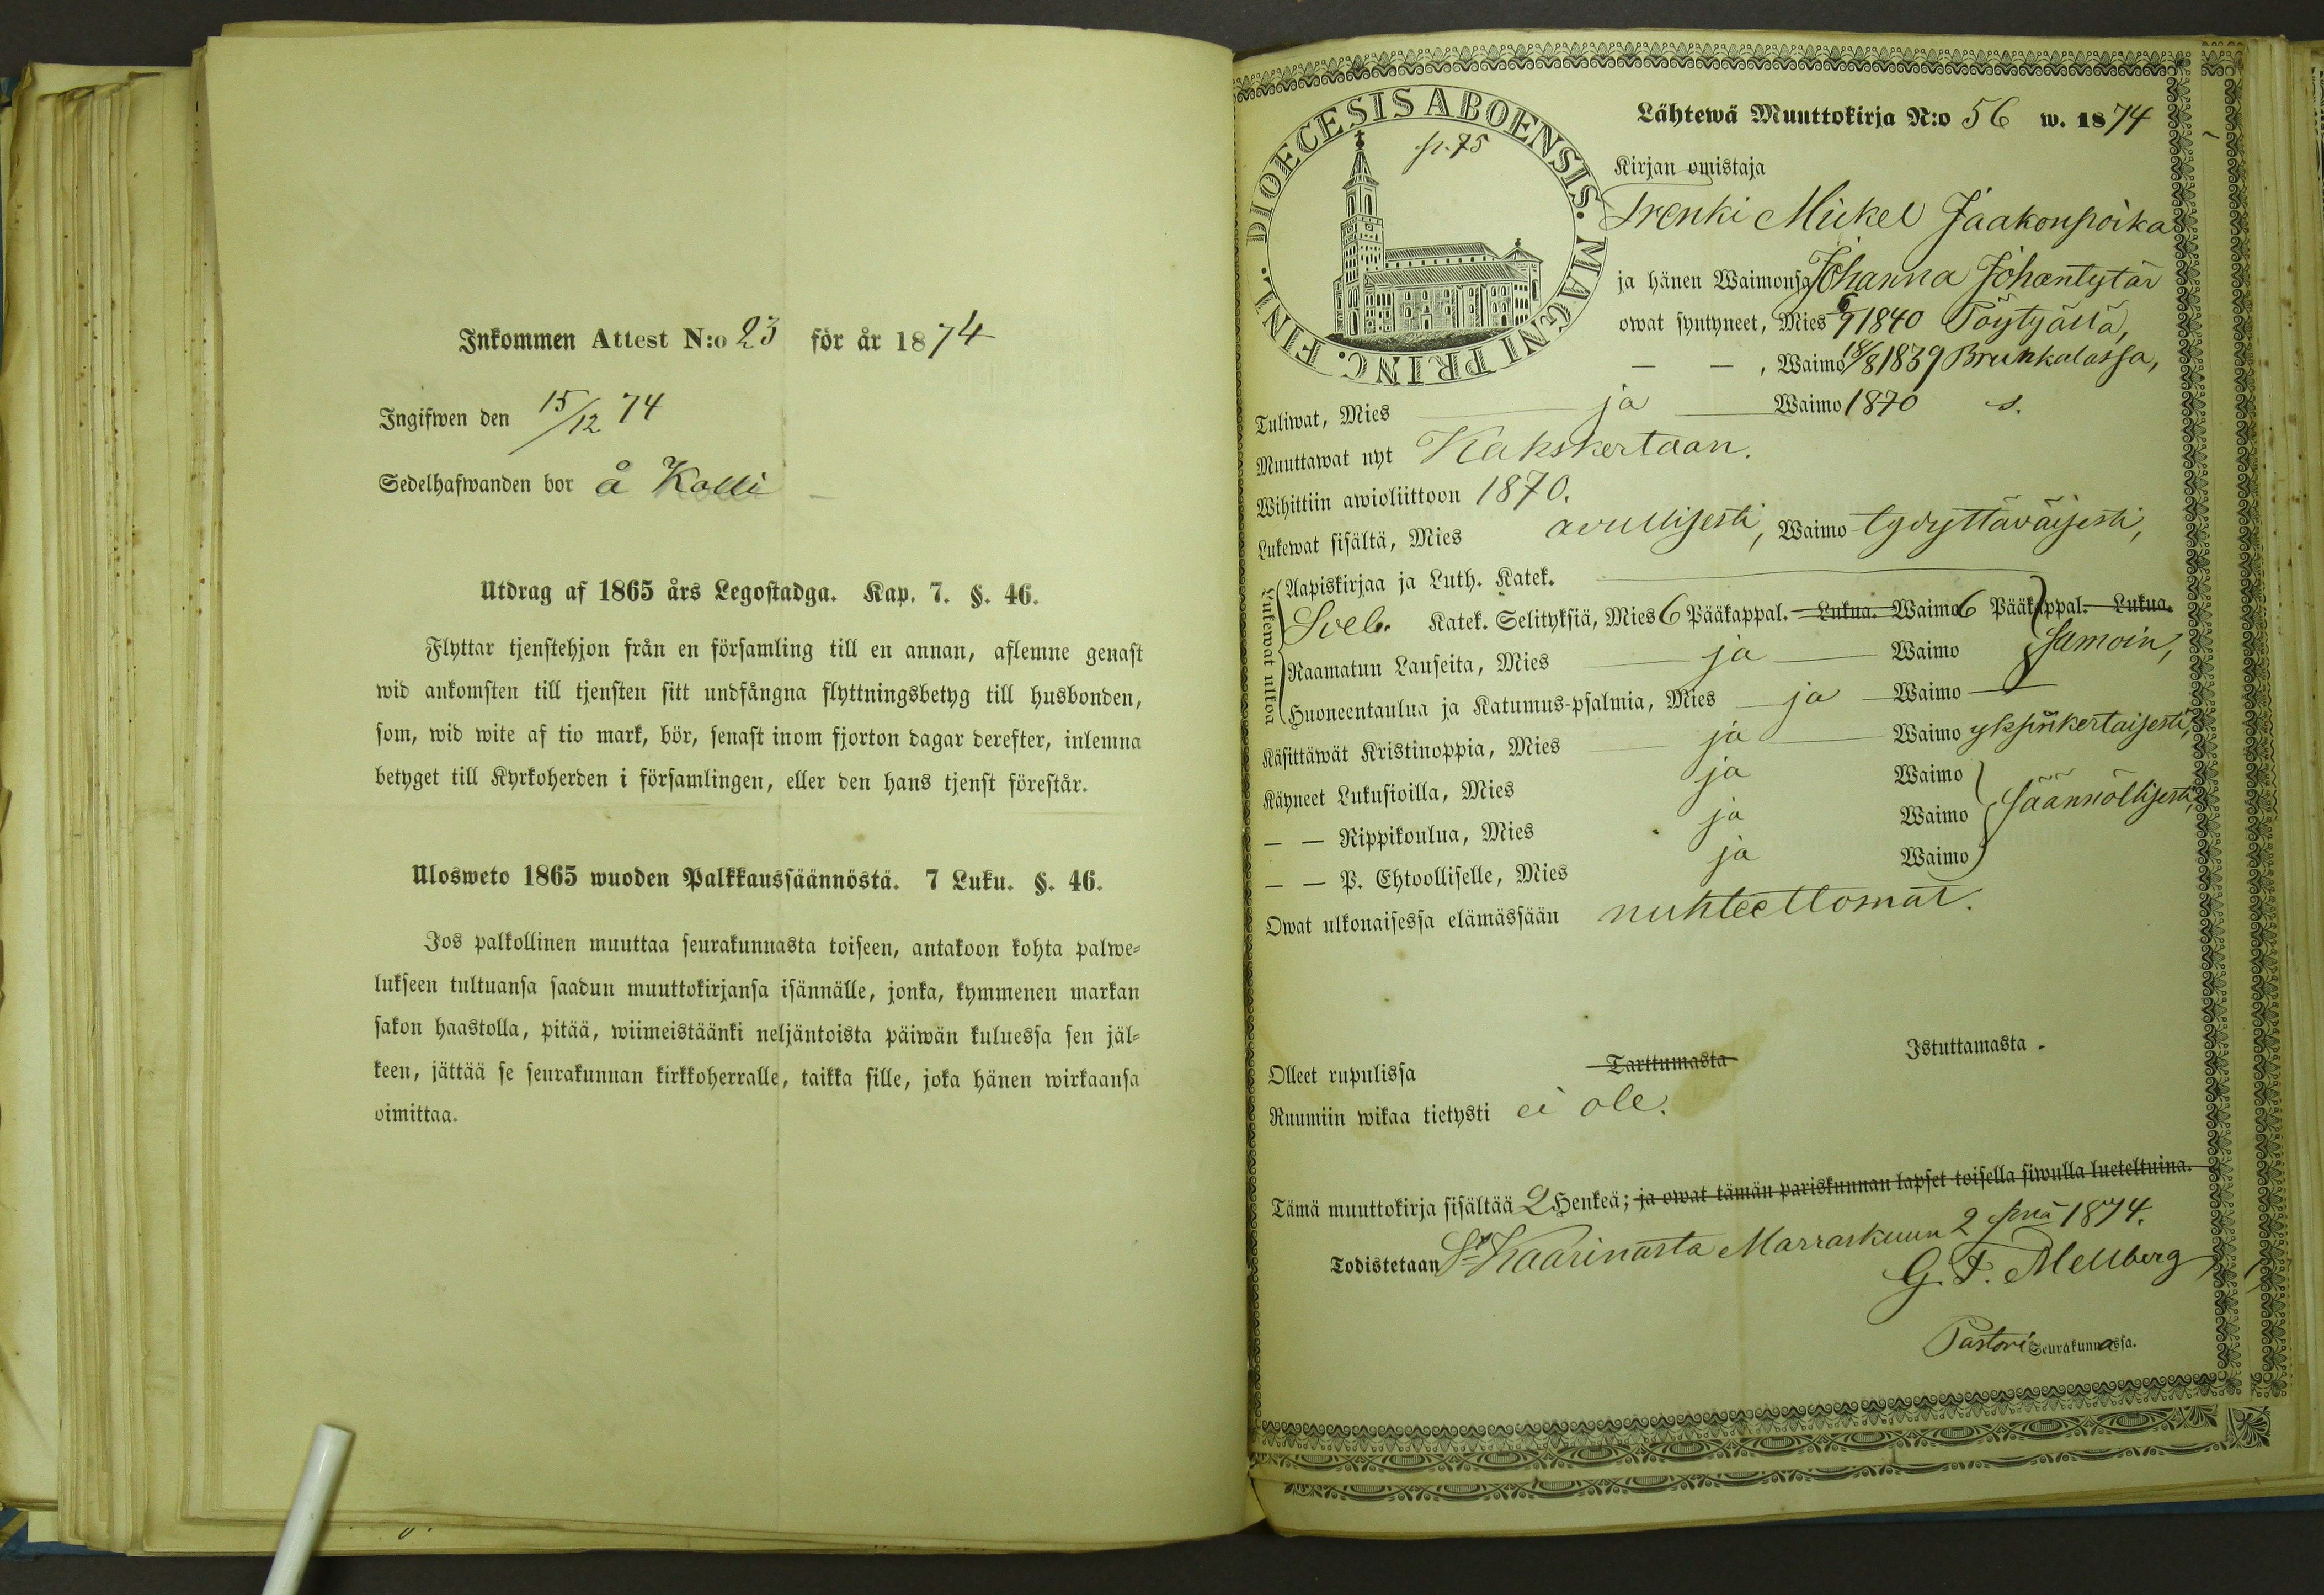 Inkommen Attest N:o 23 för år 1874
Ingifwen den 15/12 74
Sedelhafwanden bor å Kalli
Utdrag af 1865 års Legostadga. Kap. 7. §. 46.
Flyttar tjenstehjon från en församling till en annan, aflemne genast
wid ankomsten till tjensten sitt undfångna flyttningsbetyg till husbonden,
som, wid wite af tio mark, bör, senast inom fjorton dagar derefter, inlemna
betyget till Kyrkoherden i församlingen, eller den hans tjenst förestår.
Ulosweto 1865 wuoden Palkkaussäännöstä. 7 Luku. §. 46.
Jos palkollinen muuttaa seurakunnasta toiseen, antakoon kohta palwe-
lukseen tultuansa saadun muuttokirjansa isännälle, jonka, kymmenen markan
sakon haastolla, pitää, wiimeistäänki neljäntoista päiwän kuluessa sen jäl-
keen, jättää se seurakunnan kirkkoherralle, taikka sille, joka hänen wirkaansa
oimittaa.
DIOECESIS ABOENSIS. MAGNI PRINC. FINL.
p. 75
Lähtewä Muuttokirja N:o 56 w. 1874
Kirjan omistaja
Trenki Mickel Jaakonpoika
ja hänen Waimonsa Johanna Johantytär
owat syntyneet, Mies 6/9 1840 Pöytyällä,
— — , Waimo 18/8 1839 Brunkalassa,
Tuliwat, Mies — ja — Waimo 1870 s.
Muuttawat nyt Kakskertaan.
Wihittiin awioliittoon 1870.
Lukewat sisältä, Mies avullisesti, Waimo tydyttäväisesti,
Lukewat ulkoa
Aapiskirjaa ja Luth. Katek.
Sveb. Katek. Selityksiä, Mies 6 Pääkappal. Lukua. Waimo 6 Pääkappal. Lukua.
Raamatun Lauseita, Mies — ja — Waimo samoin,
Huoneentaulua ja Katumus-psalmia, Mies — ja — Waimo —
Käsittäwät Kristinoppia, Mies — ja — Waimo yksinkertaisesti,
Käyneet Lukusioilla, Mies ja Waimo
— — Rippikoulua, Mies ja Waimo säännöllisesti,
— — P. Ehtoolliselle, Mies ja Waimo
Owat ulkonaisessa elämässään nuhteettomat.
Olleet rupulissa Tarttumasta Istuttamasta.
Ruumiin wikaa tietysti ei ole.
Tämä muuttokirja sisältää 2 Henkeä; ja owat tämän pariskunnan lapset toisella siwulla lueteltuina.
Todistetaan St Kaarinasta Marraskuun 2 pnä 1874.
G. F. Mellberg
Pastori Seurakunnassa.